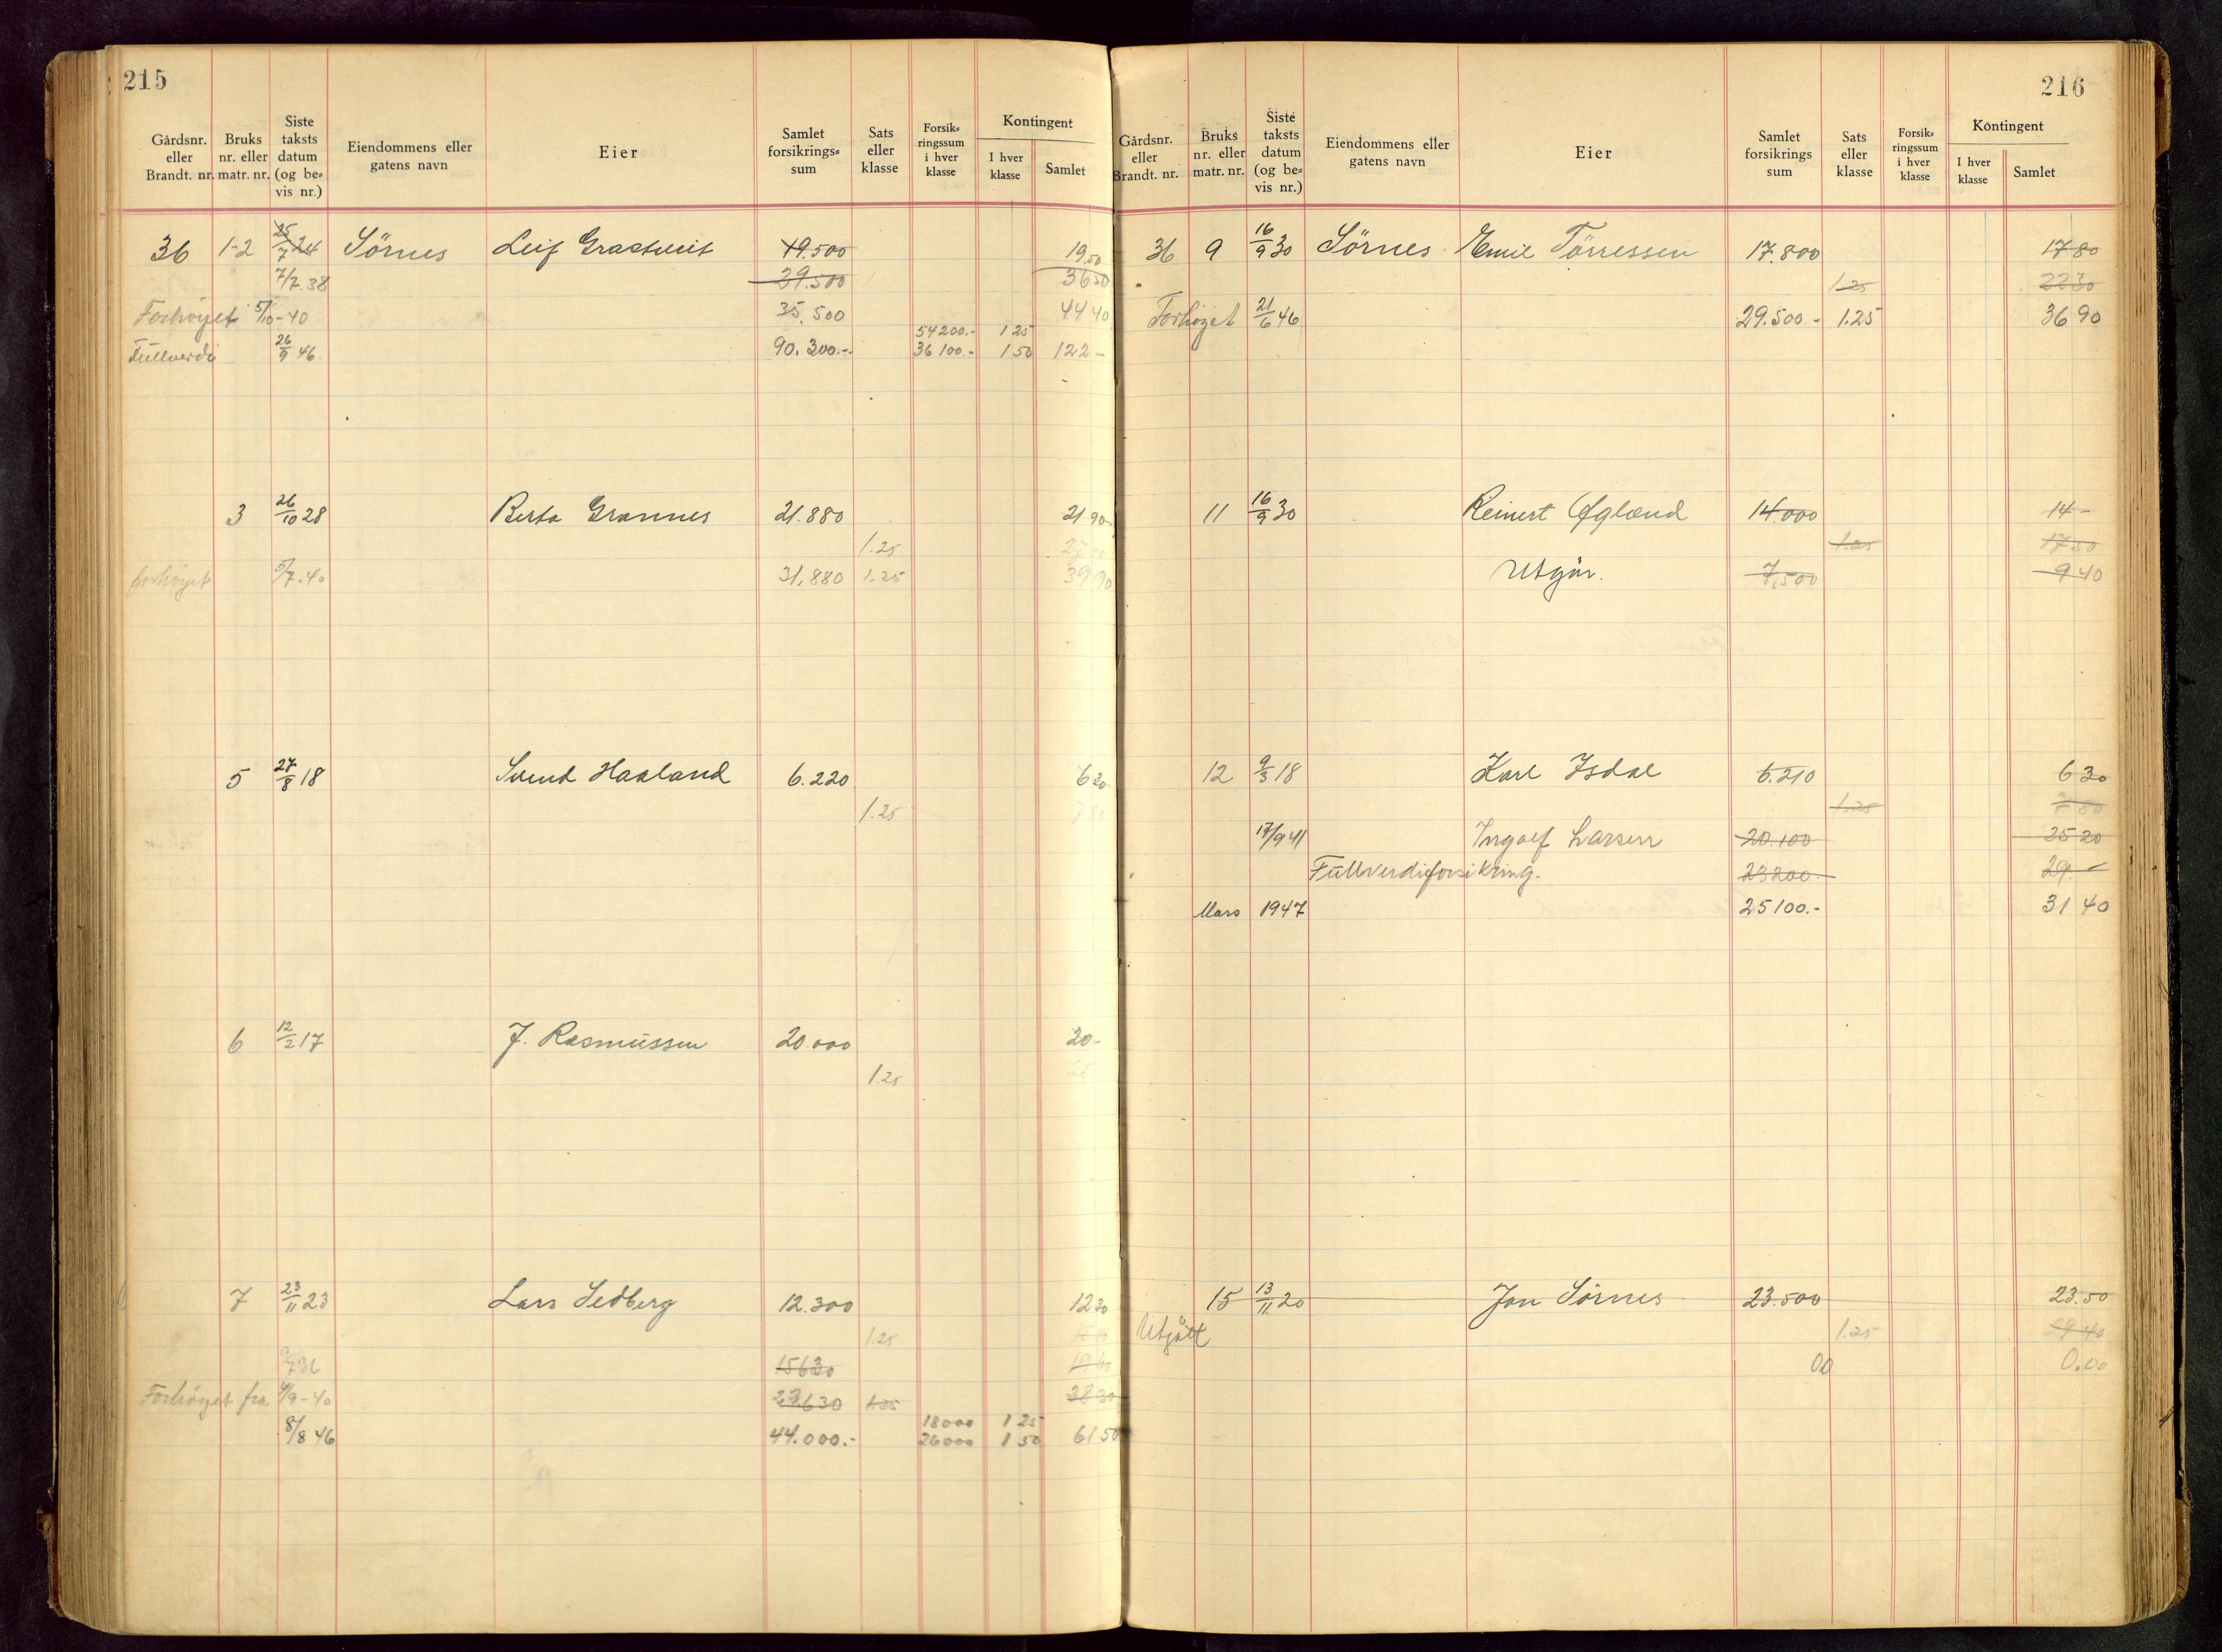 215
Gårdsnr. eller Brandt. nr. Bruks nr. eller matr. nr. Siste taksts datum (og be= vis nr.) Eiendommens eller gatens navn Eier Samlet forsikrings= sum Sats eller klasse Forsik= ringssum i hver klasse Kontingent I hver klasse Samlet
36 1-2 25/7 24 Sörnes Leif Grastveit 19.500 19.50
7/7.38 29.500 36 50
Forhöyet 5/10-40 35.500 44 40
54200.- 1 25
Fullverdi 26/9 46. 90.300.- 36100.- 1 50 122-
3 26/10 28 Berta Grannes 21.880 21 90
1.25
forhöyet 5/7.40 31,880 1.25 39 90
5 27/8 18 Svend Haaland 6.220 6 20
1.25 7 80
6 12/2 17 J. Rasmussen 20.000 20.-
1.25 25
7 23/11 23 Lars Sedberg 12.300 12 30
1.25
15630
Forhöyet fra 4/9-40 23,630 1.25
18000 1 25
8/8 46 44.000.- 26000 1 50 61 50
216
Gårdsnr. eller Brandt. nr. Bruks nr. eller matr. nr. Siste taksts datum (og be= vis nr.) Eiendommens eller gatens navn Eier Samlet forsikrings sum Sats eller klasse Forsik= ringssum i hver klasse Kontingent I hver klasse Samlet
36 9 16/9 30 Sörnes Emil Törressen 17.800 17 80
1.25 22 30
Forhöyet 21/6 46 29.500.- 1.25 36 90
11 16/9 30 Reinert Øglænd 14.000 14-
1.25 17 50
Utgår. 7,500 9 40
12 9/3 18 Karl Isdal 6.210 6 30
1.25 7 80
17/9 41 Ingolf Larsen 20.100 25 20
Fullverdiforsikring. 23200.- 29.-
Mars 1947 25100.- 31 40
15 13/11 20 Jon Sörnes 23.500 23.50
Utgått 1.25 29 40
00 0.00